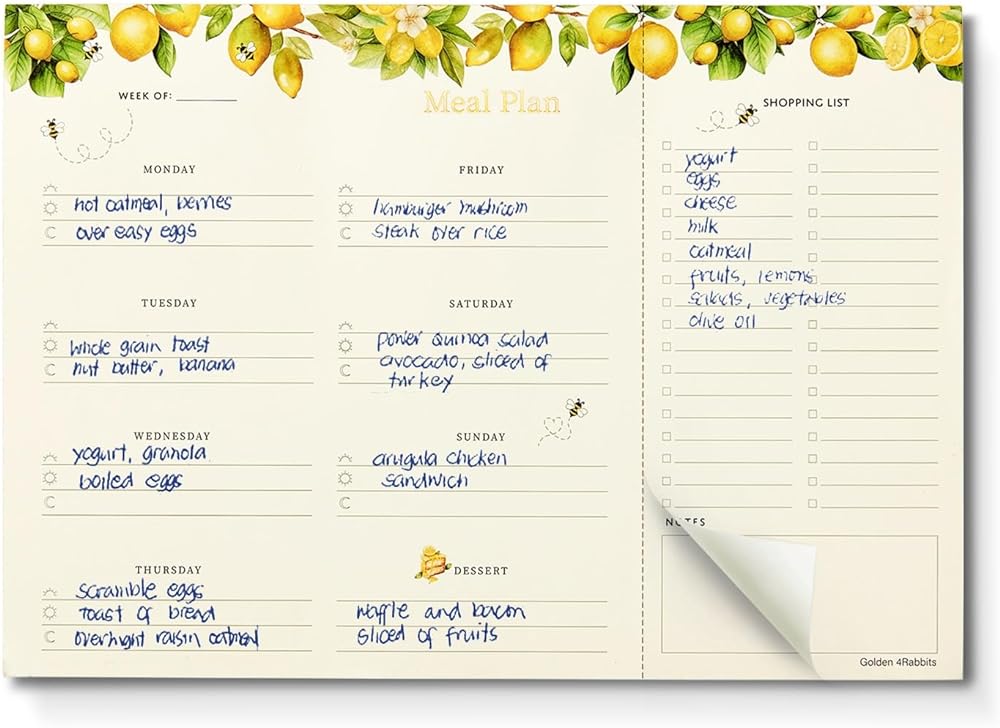 WEEK OF:
Meal Plan
MONDAY
hot oatmeal, berries
over easy eggs
TUESDAY
whole grain toast
nut butter, banana
WEDNESDAY
yogurt, granola
boiled eggs
THURSDAY
scramble eggs
toast of bread
overnight raisin oatmeal
FRIDAY
hamburger mushroom
steak over rice
SATURDAY
power quinoa salad
avocado, sliced of
turkey
SUNDAY
arugula chicken
sandwich
DESSERT
waffle and bacon
sliced of fruits
SHOPPING LIST
yogurt
eggs
cheese
milk
oatmeal
fruits, lemons
salads, vegetables
olive oil
NOTES
Golden 4Rabbits